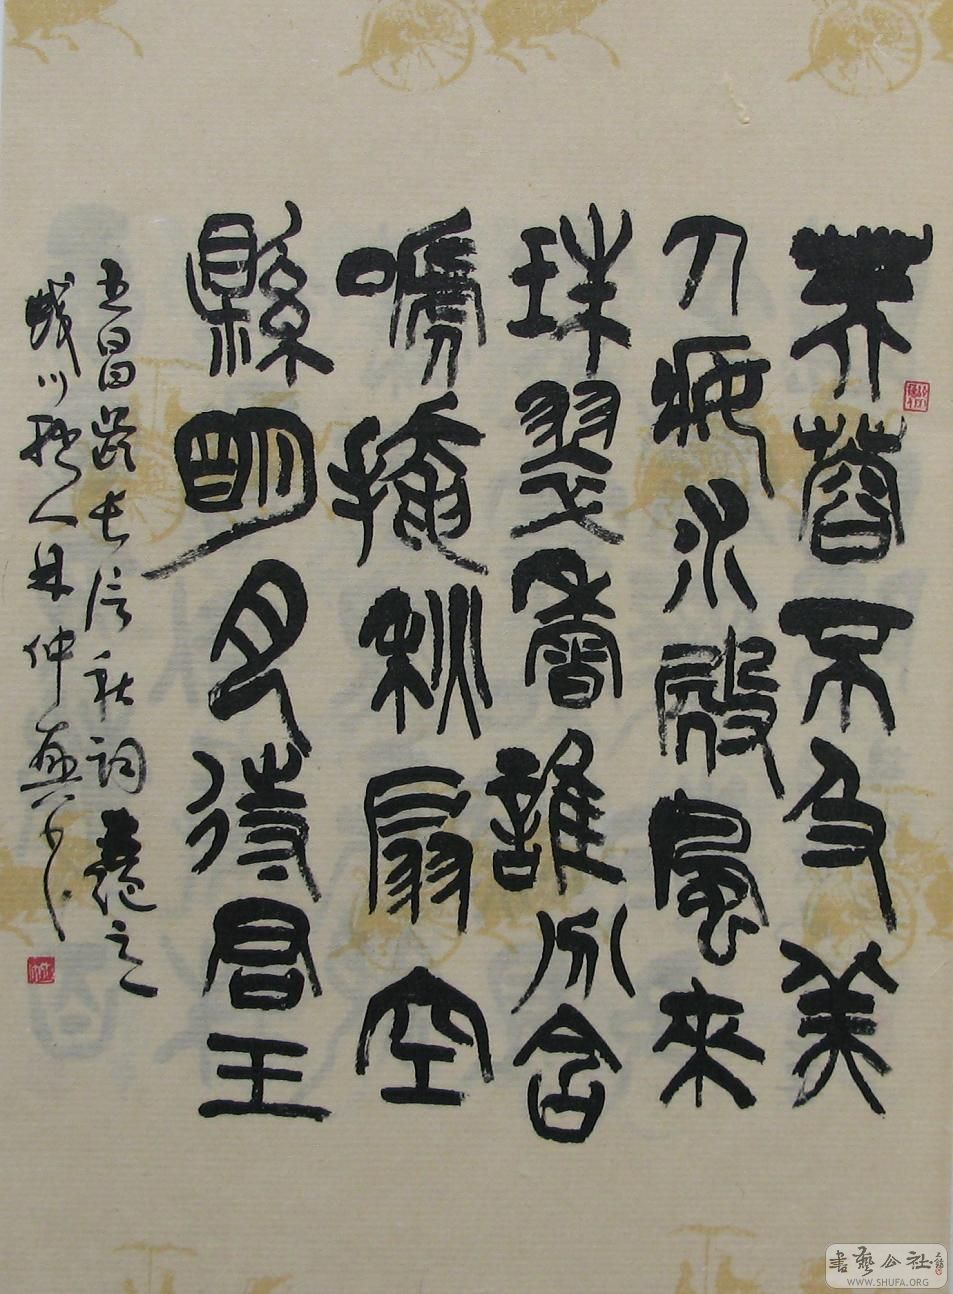 芙蓉不及美
人妝水殿風來
珠翠香誰分含
嗁掩秋扇空
縣明月待君王
王昌齡長信秋詞之
川人林仲興
書藝公社
WWW.SHUFA.ORG